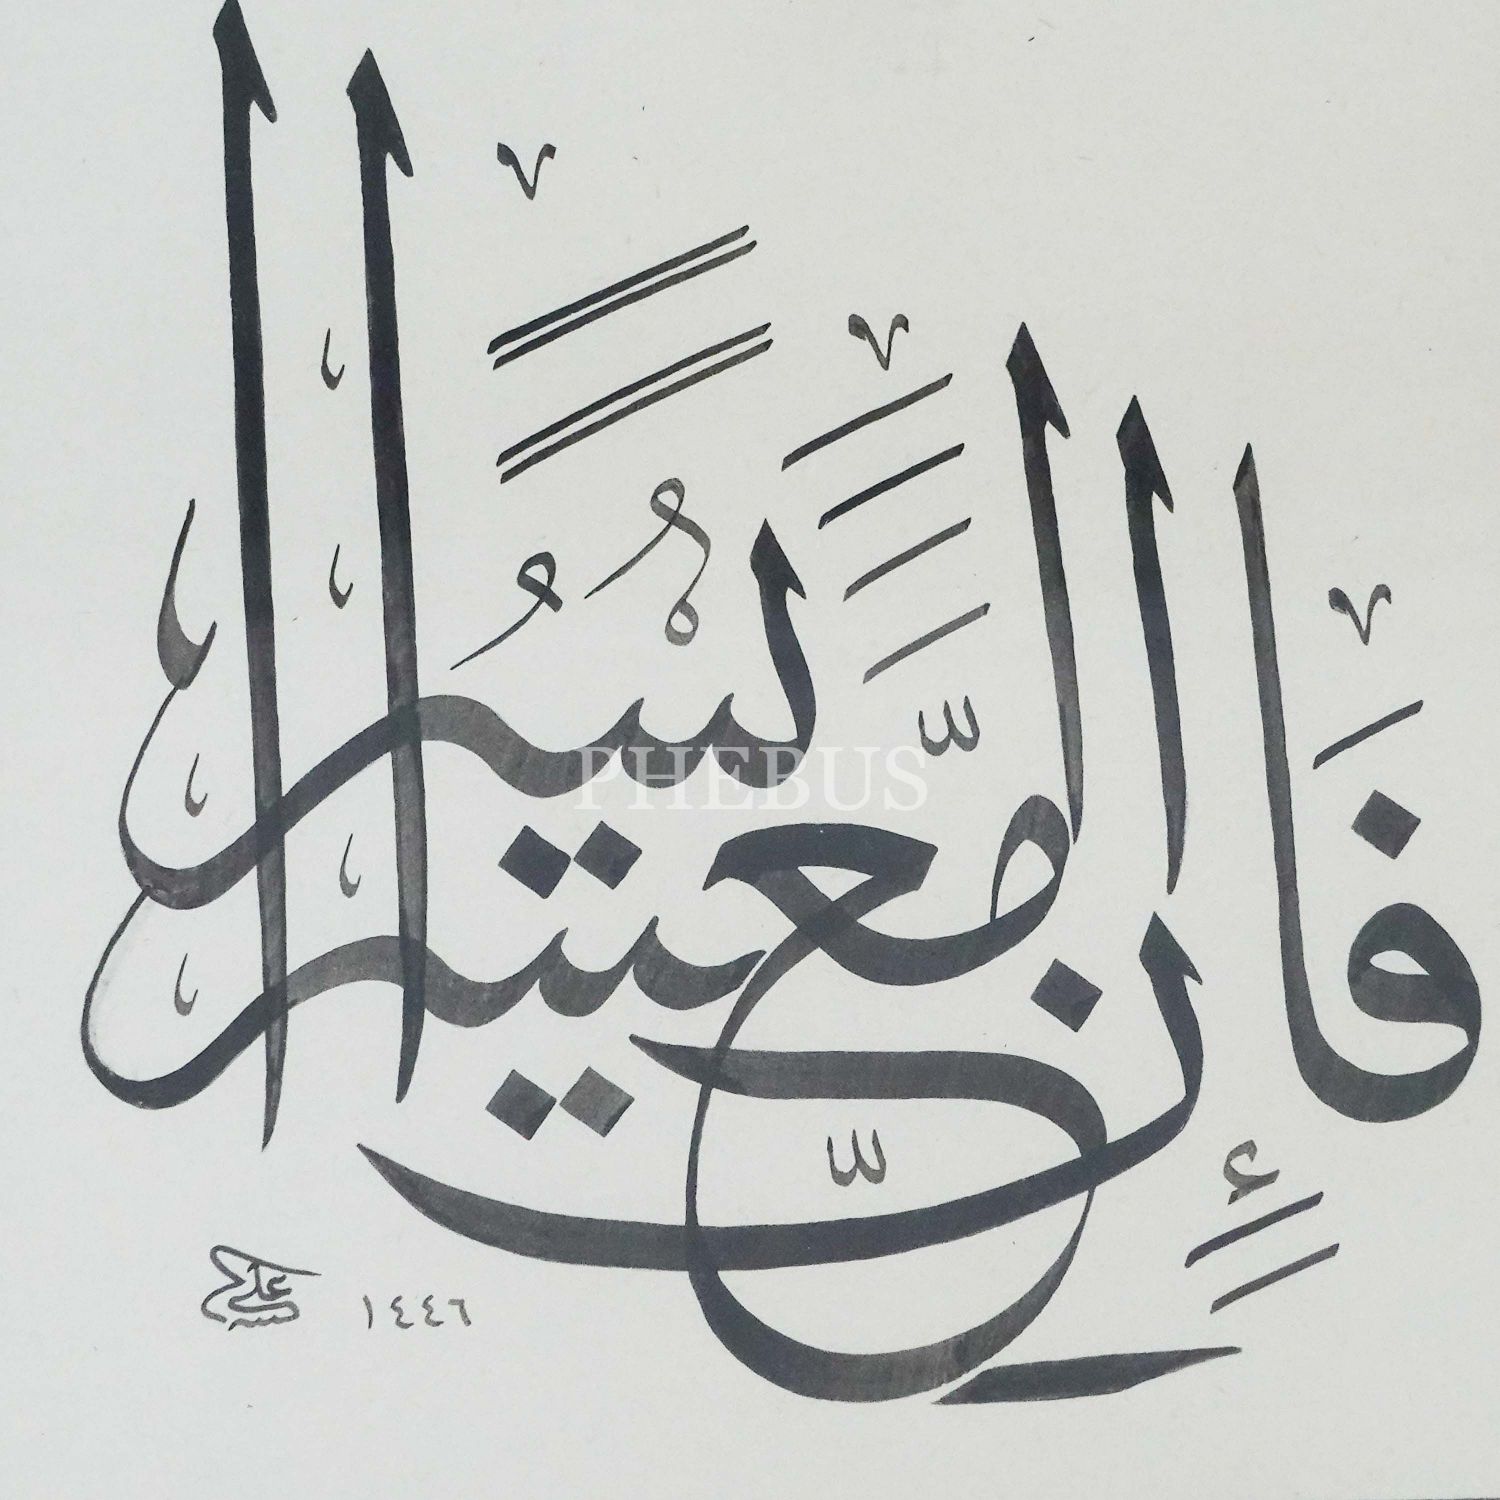 فَإِنَّ مَعَ الْعُسْرِ يُسْرًا
PHEBUS
علي ١٤٤٦